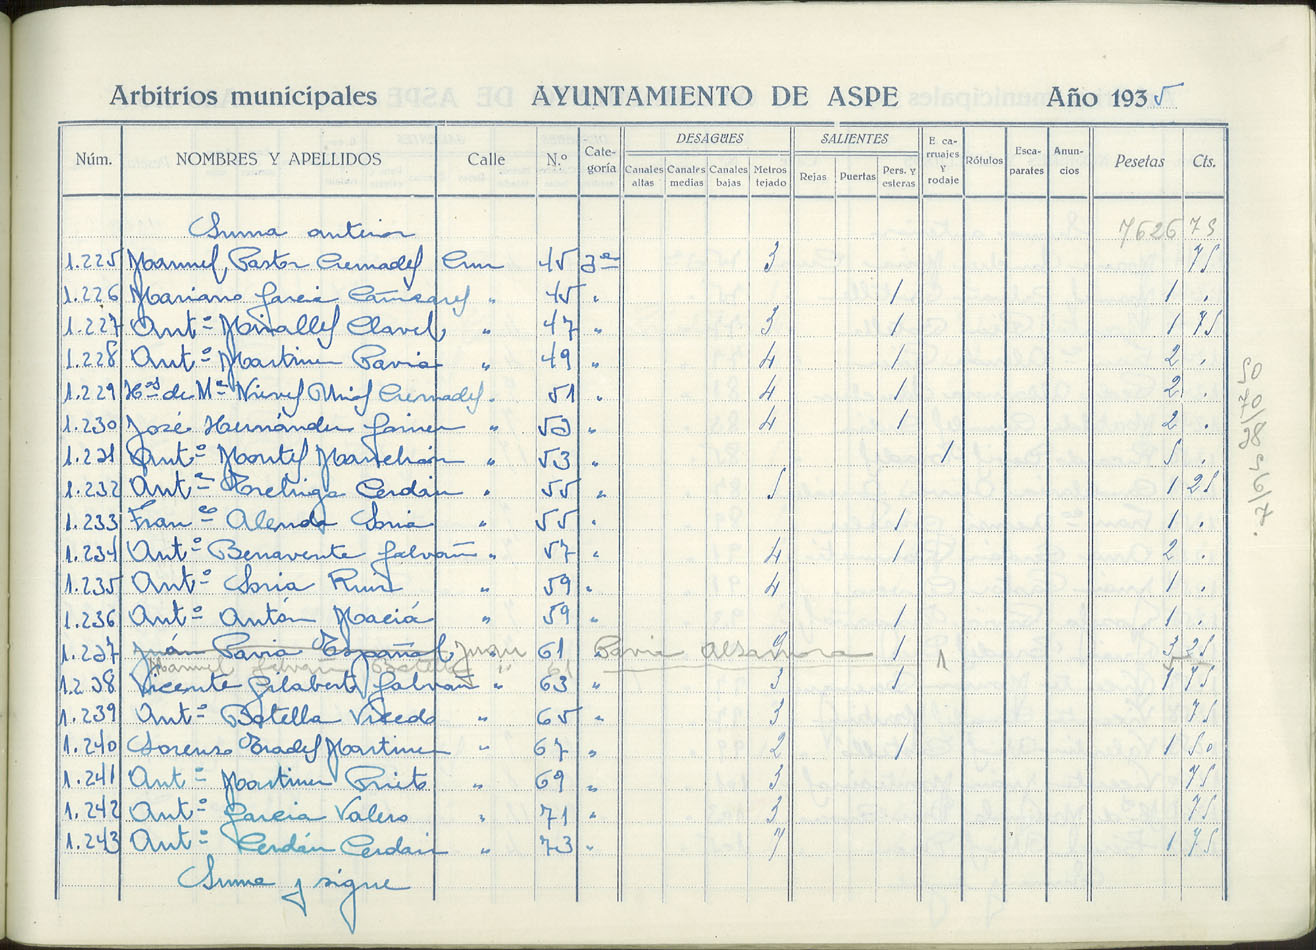 Arbitrios municipales AYUNTAMIENTO DE ASPE Año 1935
Núm. NOMBRES Y APELLIDOS Calle N.º Cate-goría DESAGÜES Canales altas Canales medias Canales bajas Metros tejado SALIENTES Rejas Puertas Pers. y esteras E ca-rruajes y rodaje Rótulos Esca-parates Anun-cios Pesetas Cts.
Suma anterior 7626 75
1.225 Manuel Pastor Cremades Cruz 45 3ª 3 75
1.226 Mariano Garcia Cañizares " 45 " 1 1 .
1.227 Antº Miralles Clavel " 47 " 3 1 1 75
1.228 Antº Martinez Pavia " 49 " 4 1 2 .
1.229 Hos de Mª Nieves Cremades " 51 " 4 1 2 .
1.230 José Hernández " 53 " 4 1 2 .
1.231 Antº Montes " 53 " 1 5 .
1.232 Antº Cerdán " 55 " 5 1 25
1.233 Franco Alenda Soria " 55 " 1 1 .
1.234 Antº Benavente Galvañ " 57 " 4 1 2 .
1.235 Antº Soria Ruiz " 59 " 4 1 .
1.236 Antº Antón Maciá " 59 " 1 1 .
1.237 Juán Pavia Español 61 Pavia 1 3 25
Manuel Galvañ Botella " 61
1.238 Vicente Gilabert Galvañ " 63 " 3 1 1 75
1.239 Antº Botella Vicedo " 65 " 3 75
1.240 Lorenzo Prades Martinez " 67 " 2 1 1 50
1.241 Antº Martinez Prieto " 69 " 3 75
1.242 Antº Garcia Valero " 71 " 3 75
1.243 Antº Cerdán Cerdán " 73 " 7 1 75
Suma y sigue